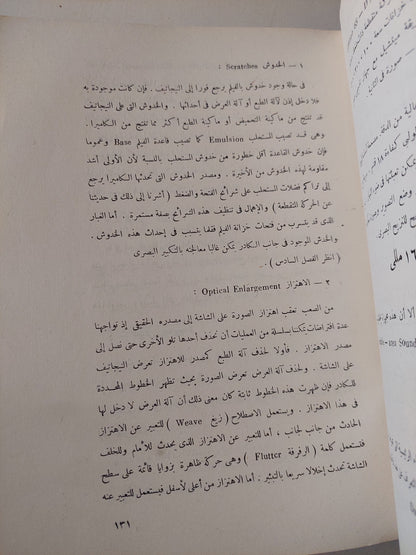 ١ — الخدوش Scratches :
في حالة وجود خدوش بالفيلم يرجع فورا إلى النيجاتيف. فإن كانت موجودة به
فلا دخل إذن لآلة الطبع أو آلة العرض في أحداثها. والخدوش التي على النيجاتيف
قد تنتج من ماكينة التحميض أو ماكينة الطبع أكثر مما تنتج من الكاميرا.
وهي قد تصيب المستحلب Emulsion كما تصيب قاعدة الفيلم Base وعموما
فإن خدوش القاعدة أقل خطورة من خدوش المستحلب بالنسبة لأن الأولى أشد
مقاومة لهذه الخدوش من الأخيرة. ومصدر الخدوش التي تحدثها الكاميرا يرجع
إلى تراكم فضلات المستحلب على شرائح الفتحة والضغط ( أشرنا إلى ذلك في حديثنا
عن الحركة المتقطعة ) والإهمال في تنظيف هذه الشرائح بصفة مستمرة. أما الغبار
الذي قد يتسرب من فتحات خزانة الفيلم فقلما يتسبب في إحداث هذه الخدوش.
والخدش الموجود في جانب الكادر يمكن غالبا معالجته بالتكبير البصرى
( انظر الفصل السادس ).
٢ — الاهتزاز Optical Enlargement :
من الصعب تعقب اهتزاز الصورة على الشاشة إلى مصدره الحقيقي إذ تواجهنا
عدة افتراضات تمكننا بسلسلة من العمليات أن نحذف أحدها تلو الأخرى حتى نصل إلى
مصدر الاهتزاز. فأولا لحذف آلة الطبع كمصدر للاهتزاز تعرض النيجاتيف
ولحذف آلة العرض تعرض الصورة بحيث تظهر الخطوط المحددة
للكادر فإن ظهرت هذه الخطوط ثابتة كان معنى ذلك أن آلة العرض لا دخل لها
في هذا الاهتزاز. ويستعمل الاصطلاح ( زيغ Weave ) للتعبير عن الاهتزاز
الحادث من جانب لجانب، أما للتعبير عن الاهتزاز الذي يحدث للأمام وللخلف
فتستعمل كلمة ( الرفرفة Flutter ) وهي حركة ظاهرة بزوايا قائمة على سطح
الشاشة تحدث إخلالا سريعا بالتبئير. أما الاهتزاز من أعلى لأسفل فيستعمل للتعبير عنه
١٣١
١٦ مللى